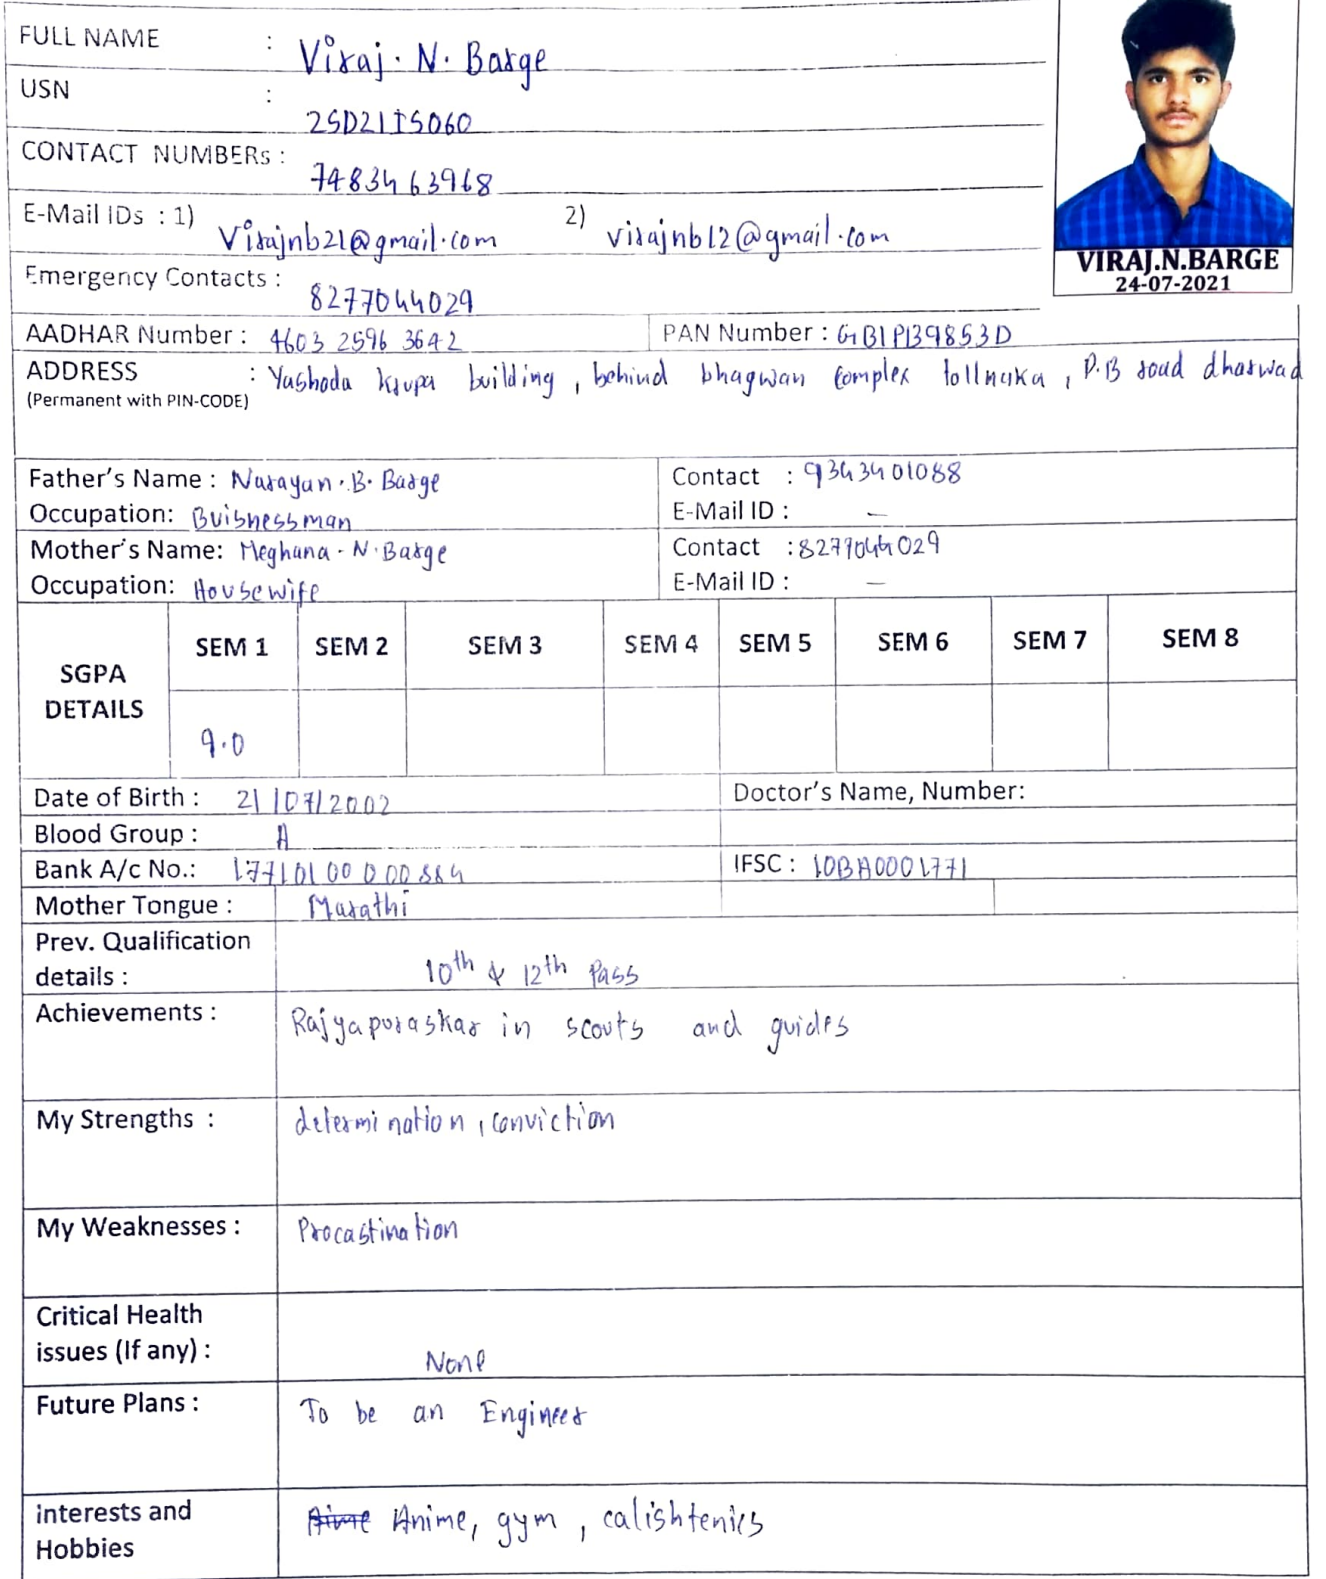 FULL NAME : Viraj. N. Barge
VIRAJ.N.BARGE
24-07-2021
USN : 2SD21IS060
CONTACT NUMBERs : 7483463968
E-Mail IDs : 1) Virajnb21@gmail.com 2) virajnb12@gmail.com
Emergency Contacts : 8277044029
AADHAR Number : 4603 2596 3642 PAN Number : GBIPB9853D
ADDRESS : Yashoda krupa building , behind bhagwan complex tollnaka , P.B road dharwad
(Permanent with PIN-CODE)
Father's Name : Narayan . B. Barge Contact : 9343401088
Occupation: Buisnessman E-Mail ID : —
Mother's Name: Meghana - N. Barge Contact : 8277044029
Occupation: Housewife E-Mail ID : —
SGPA DETAILS SEM 1 SEM 2 SEM 3 SEM 4 SEM 5 SEM 6 SEM 7 SEM 8
9.0
Date of Birth : 21/07/2002 Doctor's Name, Number:
Blood Group : A
Bank A/c No.: IFSC : IOBA0001771
Mother Tongue : Marathi
Prev. Qualification
details : 10th & 12th Pass
Achievements : Rajyapuraskar in scouts and guides
My Strengths : determination , conviction
My Weaknesses : Procastination
Critical Health
issues (If any) : None
Future Plans : To be an Engineer
Interests and Anime, gym , calishtenics
Hobbies